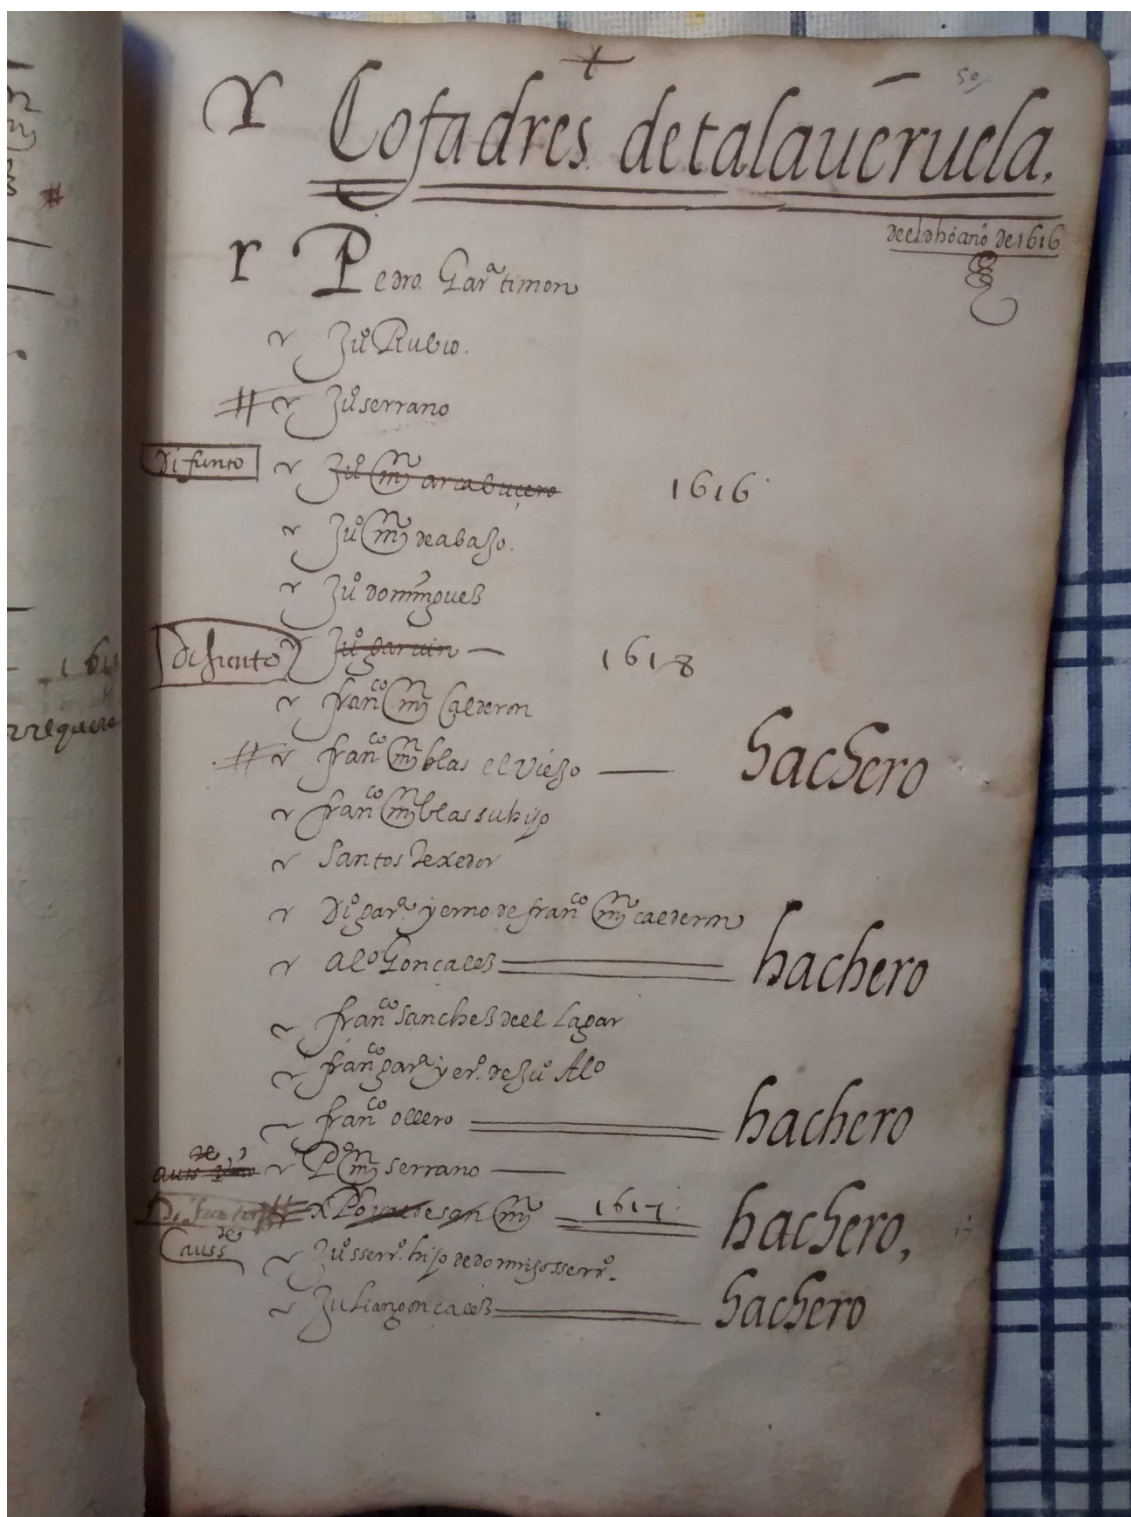 50
Cofadres detalaueruela.
deel dho año de 1616
Pedro Garª timon
Juº Rubio.
Juº serrano
difunto Juº mn arcabuçero 1616
Juº mn deabaJo.
Juº domingues
difunto Juº garuin 1618
franco mn Calderon
franco mn blas el vieJo hachero
franco mn blas su hijo
Santos Texedor
Diº garª yerno de franco mn calderon
Alº Gonçales hachero
franco sanches deel Lagar
franco garª yerº. de Juº Alº
franco ollero hachero
Pº mn serrano
Difunto 1617 hachero,
Juº sserrº. hijo de domingo sserrº.
Julian gonçales hachero